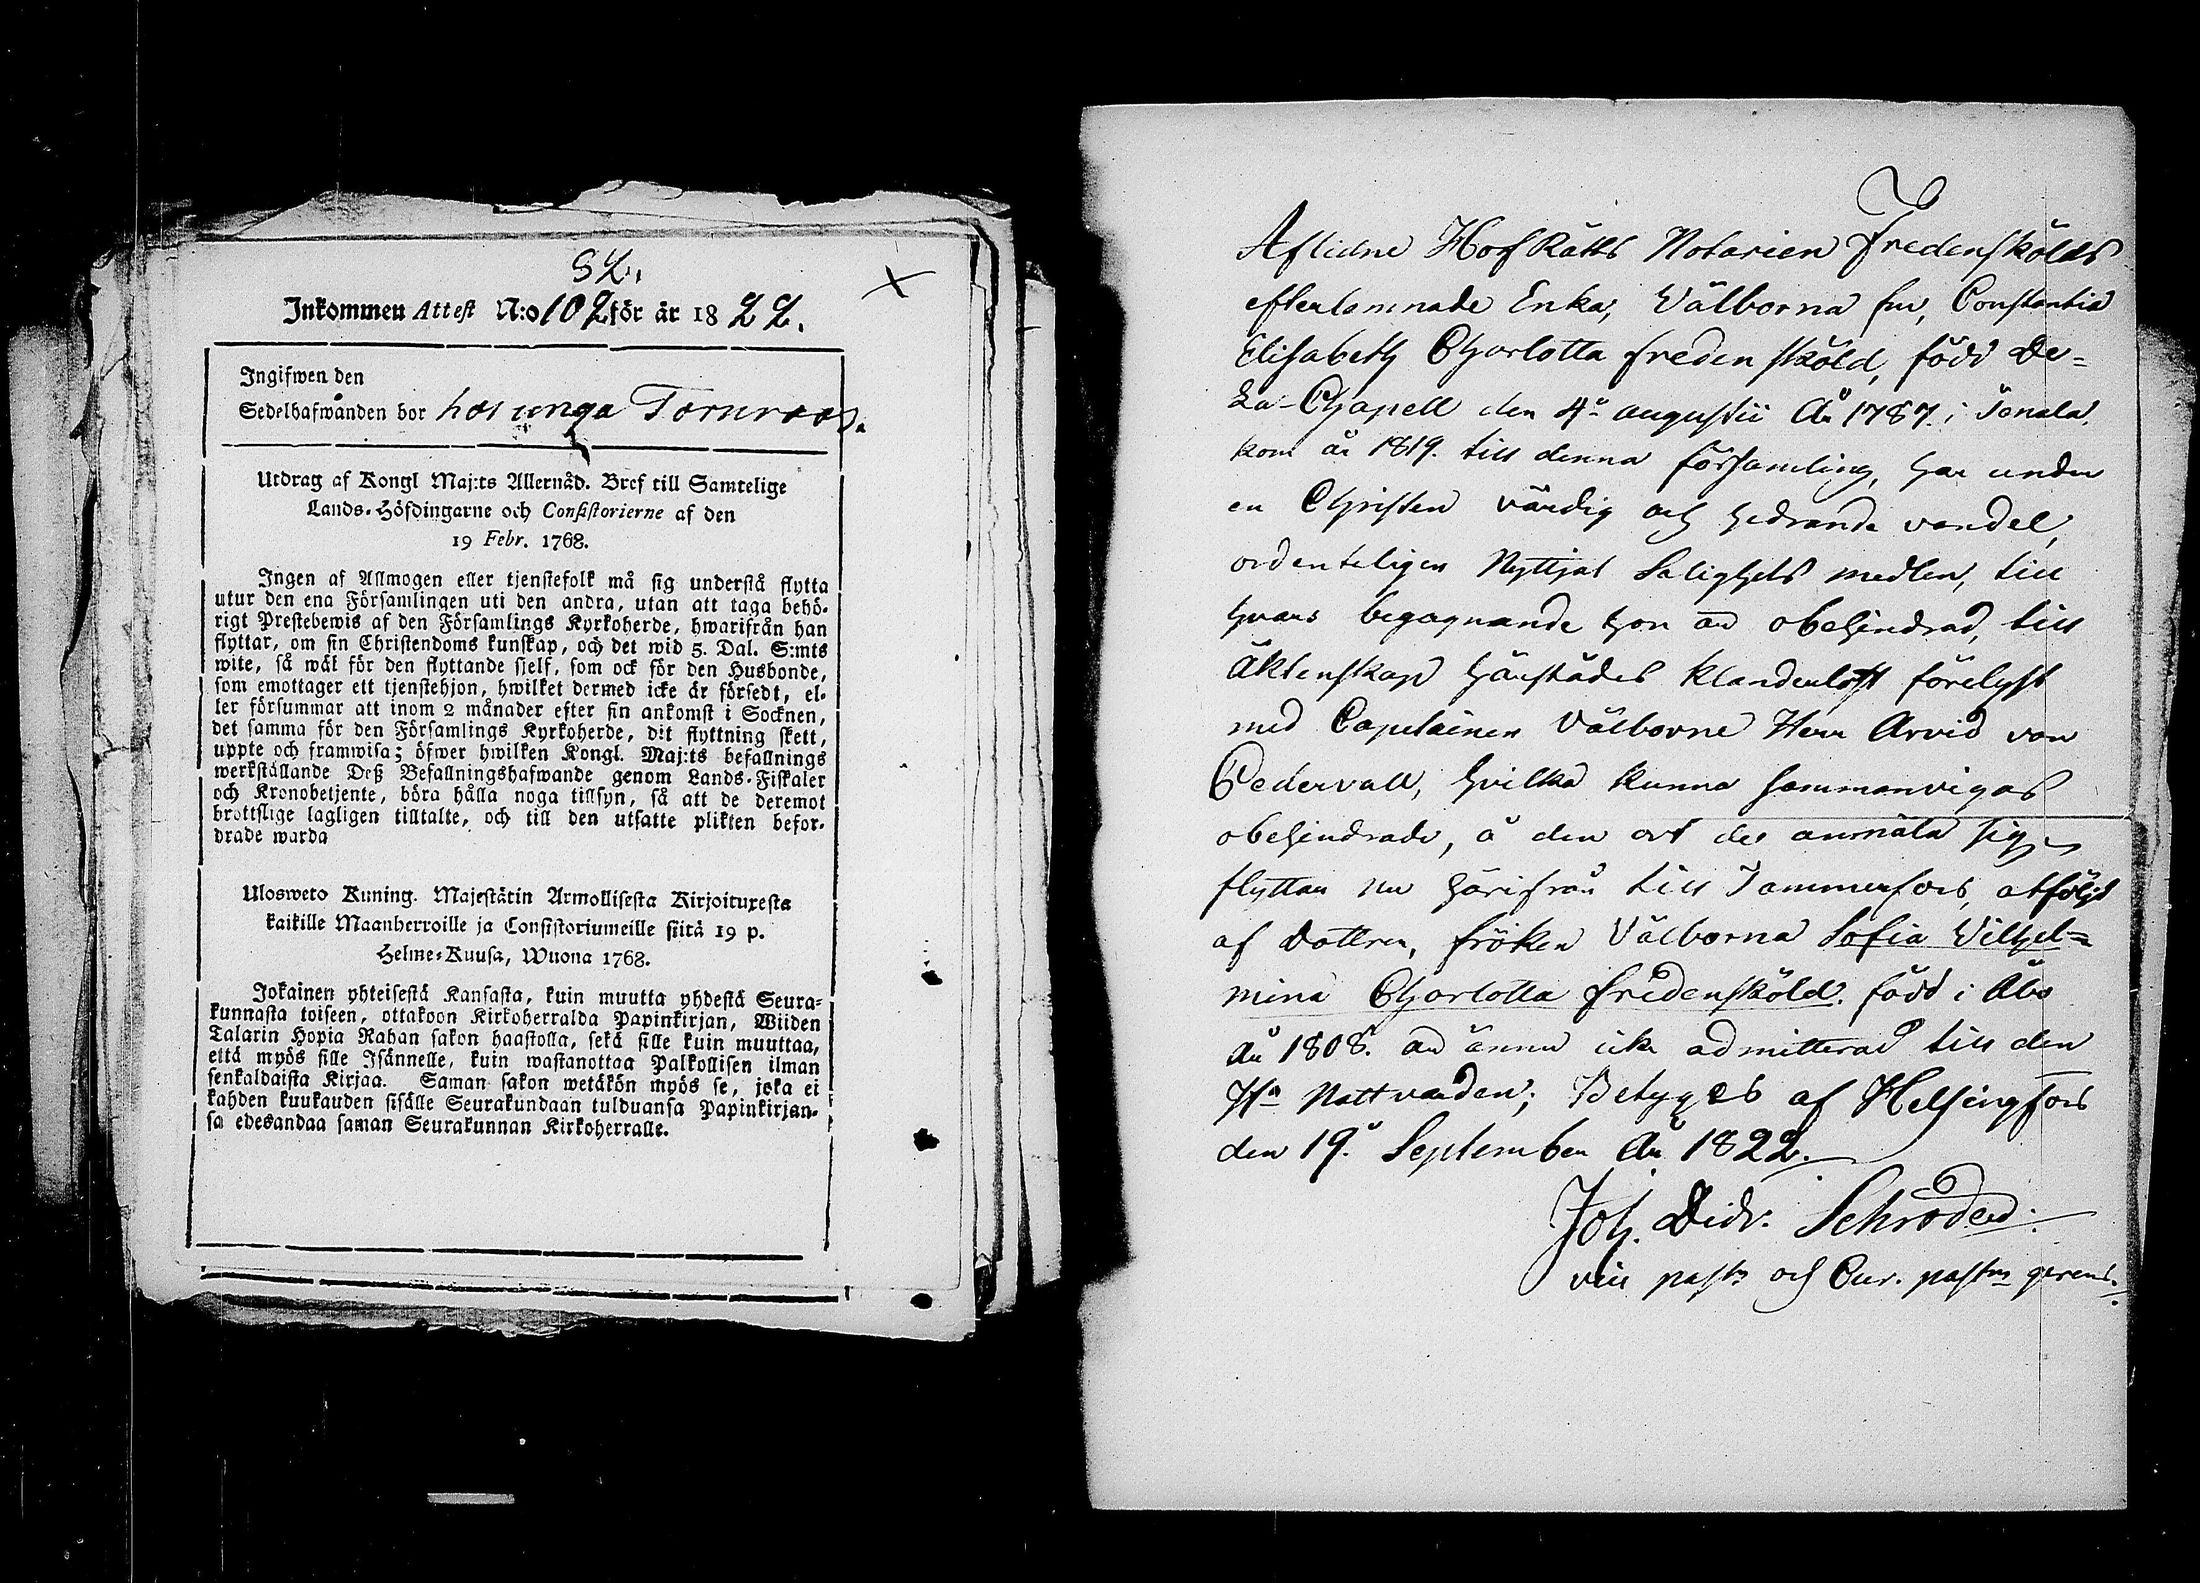 82.
Inkommen Attest N:o 102 för år 1822.
Ingifwen den
Sedelhafwanden bor hos unga Tornroos.
Utdrag af Kongl Maj:ts Allernåd. Bref till Samtelige
Lands-Höfdingarne och Consistorierne af den
19 Febr. 1768.
Ingen af Allmogen eller tjenstefolk må sig understå flytta
utur den ena Församlingen uti den andra, utan att taga behö-
rigt Prestebewis af den Församlings Kyrkoherde, hwarifrån han
flyttar, om sin Christendoms kunskap, och det wid 5. Dal. S:mts
wite, så wäl för den flyttande sjelf, som ock för den Husbonde,
som emottager ett tjenstehjon, hwilket dermed icke är försedt, el-
ler försummar att inom 2 månader efter sin ankomst i Socknen,
det samma för den Församlings Kyrkoherde, dit flyttning skett,
uppte och framwisa; öfwer hwilken Kongl. Maj:ts befallnings
werkställande Deß Befallningshafwande genom Lands-Fiskaler
och Kronobetjente, böra hålla noga tillsyn, så att de deremot
brottslige lagligen tilltalte, och till den utsatte plikten befor-
drade warda
Ulosweto Kuning. Majestätin Armollisesta Kirjoituxesta
kaikille Maanherroille ja Consistoriumeille siitä 19 p.
Helme-Kuusa, Wuona 1768.
Jokainen yhteisestä Kansasta, kuin muutta yhdestä Seura-
kunnasta toiseen, ottakoon Kirkoherralda Papinkirjan, Wiiden
Talarin Hopia Rahan sakon haastolla, sekä sille kuin muuttaa,
että myös sille Isännelle, kuin wastanottaa Palkollisen ilman
senkaldaista Kirjaa. Saman sakon wetäkön myös se, joka ei
kahden kuukauden sisälle Seurakundaan tulduansa Papinkirjan-
sa edesandaa saman Seurakunnan Kirkoherralle.
Aflidne HofRätts Notarien Fredenskölds
efterlemnade Enka, Välborna fru, Constantia
Elisabeth Charlotta Fredensköld, född De=
La-Chapell den 4de augustii År 1787. i Tenala.
kom år 1819. till denna församling, har under
en Christen värdig och hedrande vandel,
ordenteligen Nyttjat Salighets medlen, till
hvars begagnande hon är obehindrad, till
Äktenskap härstädes klanderlöst förelyst
med Capitainen Välborne Herr Arvid von
Cedervall, hvilka kunna sammanvigas
obehindrade, å den ort de anmäla sig,
flyttar nu härifrån till Tammerfors, åtföljd
af dottren, fröken Välborna Sofia Vilhel=
mina Charlotta Fredensköld. född i Åbo
År 1808. är ännu icke admitterad till den
Ha Nattvarden; Betyges af Helsingfors
den 19. September År 1822.
Joh. Didr. Schröder.
vice past. och Cur. past. gerens.